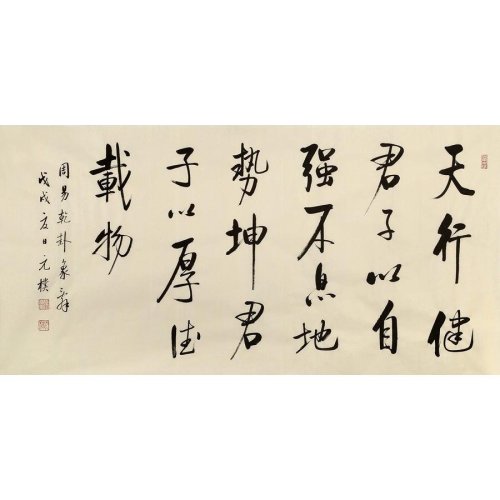 天行健
君子以自
强不息地
勢坤君
子以厚德
載物
周易乾卦象辞
戊戌夏日元樸